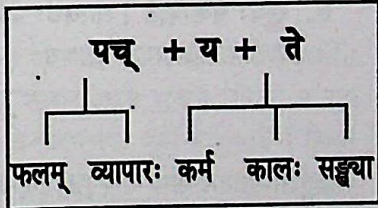 पच् + य + ते
फलम् व्यापारः कर्म कालः सङ्ख्या